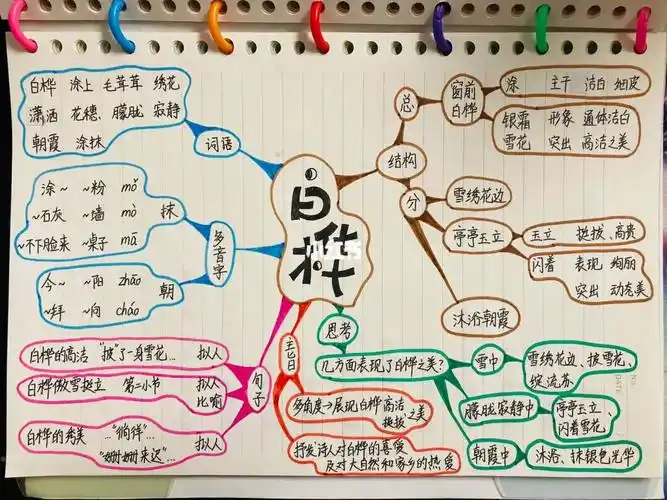 白桦
小红书
词语
白桦 涂上 毛茸茸 绣花
潇洒 花穗、朦胧 寂静
朝霞 涂抹
多音字
抹
涂~ ~粉 mǒ
~石灰 ~墙 mò
~不下脸来 ~桌子 mā
朝
今~ ~阳 zhāo
~拜 ~向 cháo
句子
白桦的高洁 "披"了一身雪花... 拟人
白桦傲雪挺立 第二小节 拟人
比喻
白桦的秀美 ..."徜徉"... 拟人
"姗姗来迟"...
主旨
多角度→展现白桦高洁
挺拔之美
抒发诗人对白桦的喜爱
及对大自然和家乡的热爱
结构
总
窗前
白桦
涂 主干 洁白 细皮
银霜 形象 通体洁白
雪花 突出 高洁之美
分
雪绣花边
亭亭玉立
玉立 挺拔、高贵
闪着 表现 绚丽
突出 动态美
沐浴朝霞
思考
几方面表现了白桦之美?
雪中
雪绣花边、披雪花、
绽流苏
朦胧寂静中
亭亭玉立、
闪着雪花
朝霞中
沐浴、抹银色光华
DATE